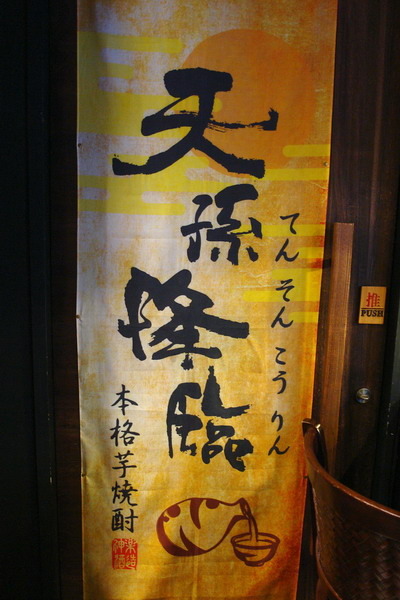 天孫降臨
てん そん こう りん
本格芋焼酎
推
PUSH